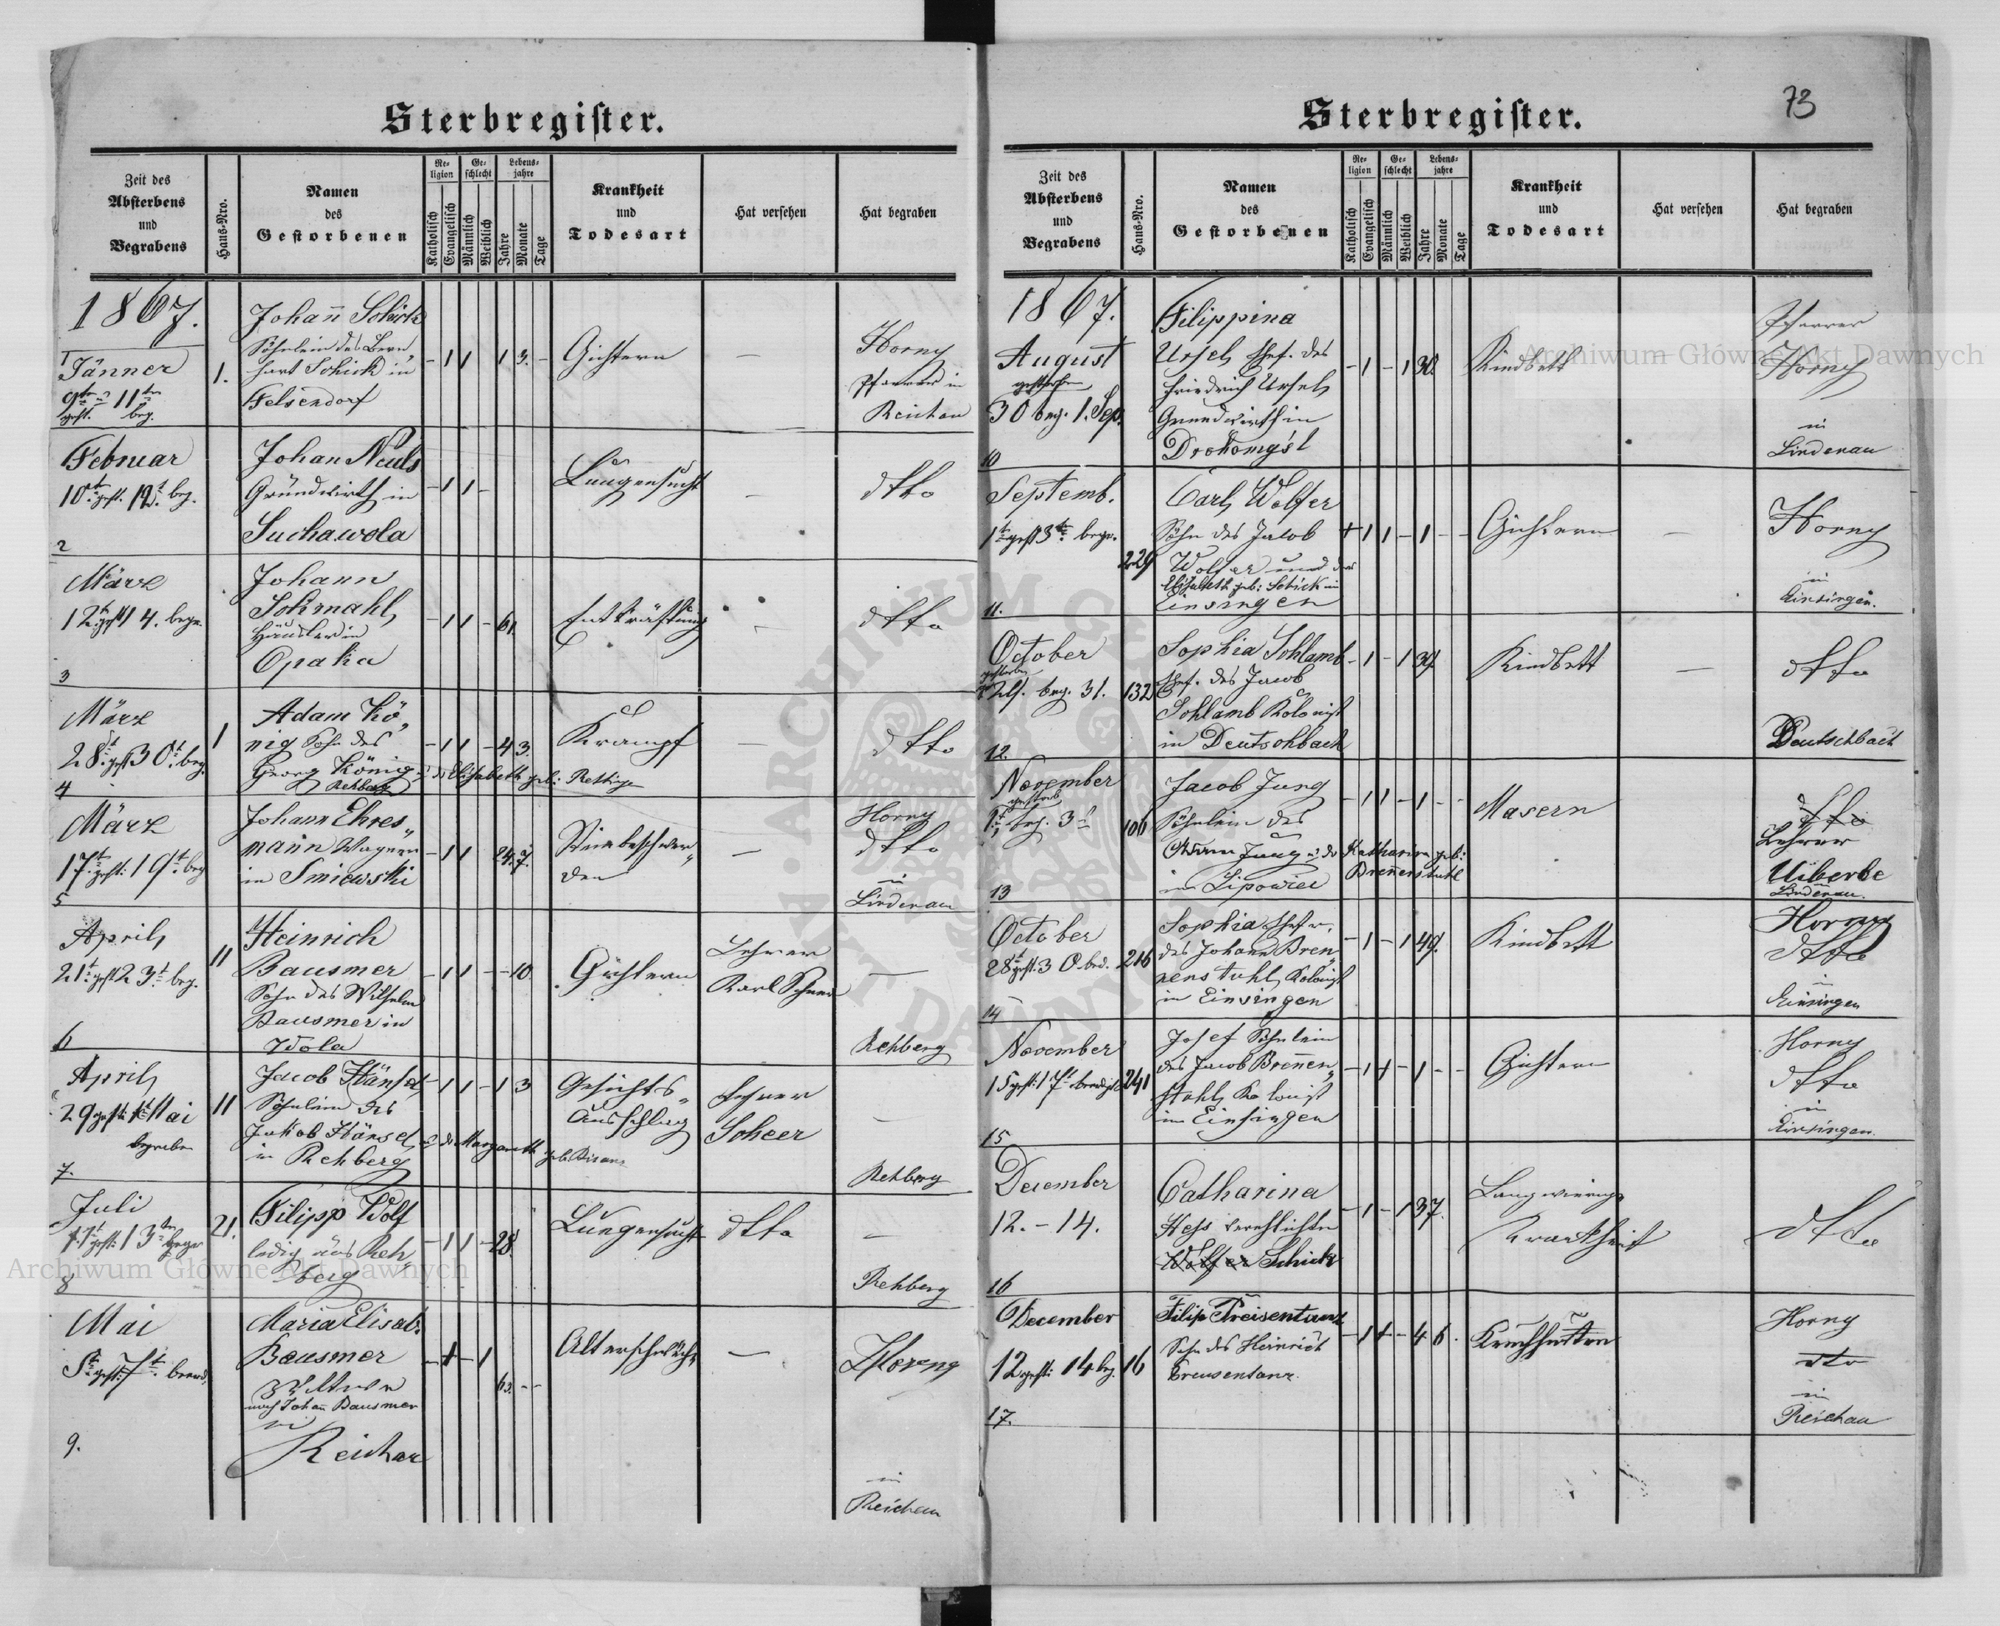 73
Sterbregister.
Zeit des Absterbens und Begrabens
Haus-Nro.
Namen des Gestorbenen
Religion
Katholisch
Evangelisch
Geschlecht
Männlich
Weiblich
Lebensjahre
Jahre
Monate
Tage
Krankheit und Todesart
Hat versehen
Hat begraben
1867.
1
Jänner
9te 11te
gest. beg.
1.
Johañ Schick
Söhnlein des Bern
hart Schick in
Felsendorf
- 1 1 1 3. -
Gichtern
—
Horny
Pfarrer in
Reichau
Februar
10t gest. 12t beg.
2
Johan Neuls
Grundwirth in
Suchawola
- 1 1 -
Lungensucht
—
dtto
März
12t gest 14. begr.
3
Johann
Schmahl
Häusler in
Opaka
- 1 1 - 61.
Entkräftung
—
dtto
März
28t gest 30t beg.
4
1
Adam Kö„
nig Sohn des
Georg König u d Elisabeth geb: Rettig
Rehberg
- 1 1 - 4 3.
Krampf
—
dtto
März
17t gest: 19t beg
5
Johann Ehres„
mañn Wagner
in Smiewski
- 1 1 24. 7.
den
—
Horny
dtto
in
Lindenau
April
21t gest 23t beg.
6
11
Heinrich
Bausmer
Sohn des Wilhelm
Bausmer in
Wola
- 1 1 - - 10
Gichtern
Lehrer
Karl
—
Rehberg
April
29 gest: 1t Mai
begraben
7.
11
Jacob Hänsel
Söhnlein des
Jakob Hänsel u d Margareth geb.
in Rehberg
- 1 1 - 1 3
Gesichts„
Ausschlag
Lehrer
Scheer
—
Rehberg
Juli
11t gest: 13ten begr
8
21.
Filipp Wolf
ledig aus Reh„
berg
- 1 1 - 28.
Lungensucht
dtto
—
Rehberg
Mai
5t gest: 7t beerd.
9.
Maria Elisab.
Bausmer
Wittwe
nach Johañ Bausmer
in
Reichau
- 1 - 1
63. - -
Altersschwäche
—
Horny
in
Reichau
Sterbregister.
Zeit des Absterbens und Begrabens
Haus-Nro.
Namen des Gestorbenen
Religion
Katholisch
Evangelisch
Geschlecht
Männlich
Weiblich
Lebensjahre
Jahre
Monate
Tage
Krankheit und Todesart
Hat versehen
Hat begraben
1867.
August
gestorben
30 beg. 1. Sep.
10
Filippina
Ursel Ehef. des
Friedrich Ursel
Grundwirth in
Drohomysl
- 1 - 1 30.
Kindbett
Pfarrer
Horny
in
Lindenau
Septemb.
1t gest 3t begr.
11.
229
Carl Wolfer
Sohn des Jacob
Wolfer und der
Elisabeth geb: Schick in
Einsingen
1 1 - 1 - -
Gichtern
—
Horny
in
Einsingen.
October
gestorben
beg. 31.
12.
132
Sophia Schlamb
Ehef. des Jacob
Schlamb Kolonist
in Deutschbach
- 1 - 1 34
Kindbett
—
dtto
Deutschbach
November
gestorb
1t beg. 3t
13
106
Jacob Jung
Söhnlein des
Adam Jung u d Katharina geb:
Breñerstuhl
in Lipowiec
- 1 1 - 1 - -
Masern
dtto
Lehrer
Uiberle
Lindenau.
October
28t gest. 30. beerd.
14
216
Sophia Ehefr.
des Johann Bren„
nenstuhl Kolonist
in Einsingen
- 1 - 1 49.
Kindbett
Horny
dtto
in
Einsingen
November
15 gest: 17t beerdigt
15
241
Josef Söhnlein
des Jacob Breñen„
stuhl Kolonist
in Einsingen
- 1 1 - 1 - -
Gichtern
Horny
dtto
in
Einsingen.
December
12. - 14.
16
Catharina
Hess verehlichte
Wolfer Schick
- 1 - 1 37.
Langwierige
Krankheit
dtto
December
12 gest: 14 beg.
17.
16
Filip Treisentanz
Sohn des Heinrich
Treusentanz
- 1 1 - 4 6.
Keuchhusten
Horny
dto
in
Reichau
Archiwum Główne Akt Dawnych
Archiwum Główne Akt Dawnych
ARCHIWUM GŁÓWNE AKT DAWNYCH